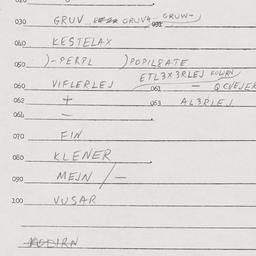 030 GRUV GRUV4 GRUW-)
040 KESTELAX
050 )-PERPL )POPIL8ATE
060 VIFLERLEJ ETL3X3RLEJ
061 - QCVEJEK
062 + 063 AL3RLEJ
064 -
070 FIN
080 KLENER
090 MEJN /-
100 VUSAR